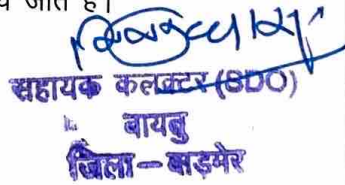 जाते है।
सहायक कलक्टर (SDO)
बायतु
जिला - बाड़मेर